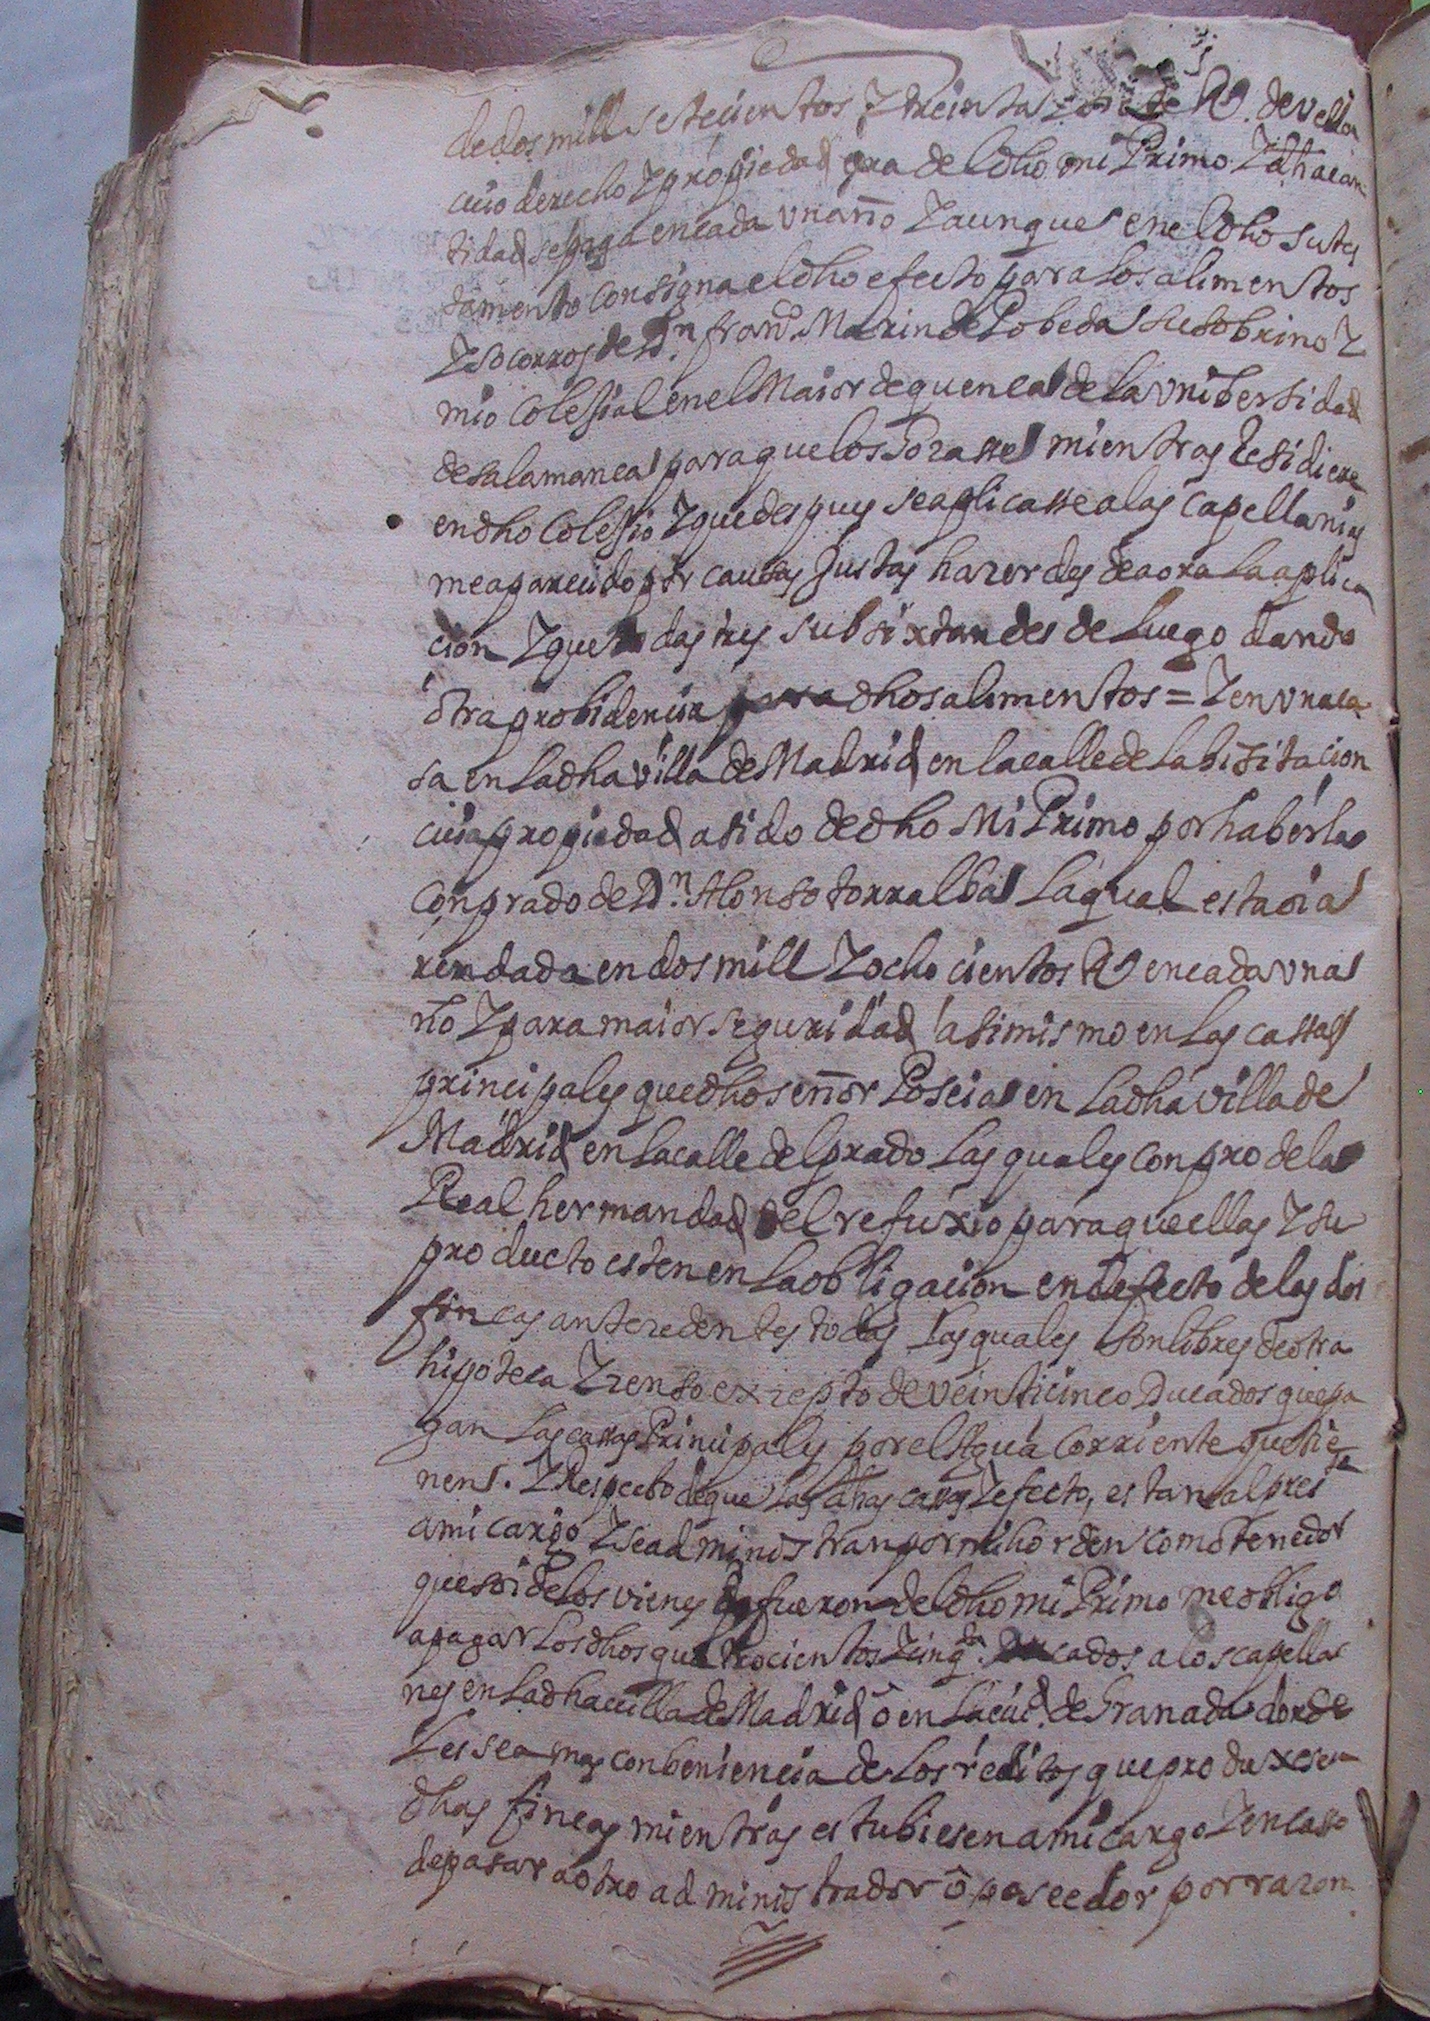 de dos mill setecientos y treinta de Rs. de vellon
cuio derecho y propiedad era del dho mi Primo y dha can
tidad se paga en cada un año y aunque en el dho su tes
tamento consigna el dho efecto para los alimentos
y socorros de Dn. franco. Marin de Pobeda su sobrino y
mio colesial en el Maior de quenca de la vnibersidad
de salamanca para que los Gozasse mientras Residiere
en dho colesio y que despues se aplicasse a las capellanias
me a parecido por causas justas hazer des de aora la aplica
cion y que todas tres subsixtan des de luego dando
otra probidencia para dhos alimentos = y en vna ca
sa en la dha villa de Madrid en la calle de la bisitacion
cuia propiedad a sido de dho Mi Primo por haberla
conprado de Dn. Alonso torralba la qual esta oi a
rrendada en dos mill y ocho cientos Rs en cada vn a
ño y para maior seguridad asimismo en las cassas
principales que dho señor Poseia en la dha villa de
Madrid en la calle del prado las quales conpro de la
Real hermandad del refuxio para que ellas y su
producto esten en la obligacion en defecto de las dos
fincas antezedentes todas las quales son libres de otra
hipoteca y zenso exzepto de veinticinco Ducados que pa
gan las cassas Principales por el Agua corriente que tie
nen. y Respecto de que las dhas casas y efecto, estan al pres te
a mi cargo y se administran por mi horden como tenedor
que soi de los vienes q fueron del dho mi Primo me obligo
a pagar los dhos quatrocientos y cinqta. Ducados a los capella
nes en la dha uilla de Madrid ô en la ciud. de Granada donde
les sea mas conbeniencia de los reditos que produxesen
dhas fincas mientras estubiesen a mi cargo y en casso
de pasar a otro administrador ô poseedor por razon